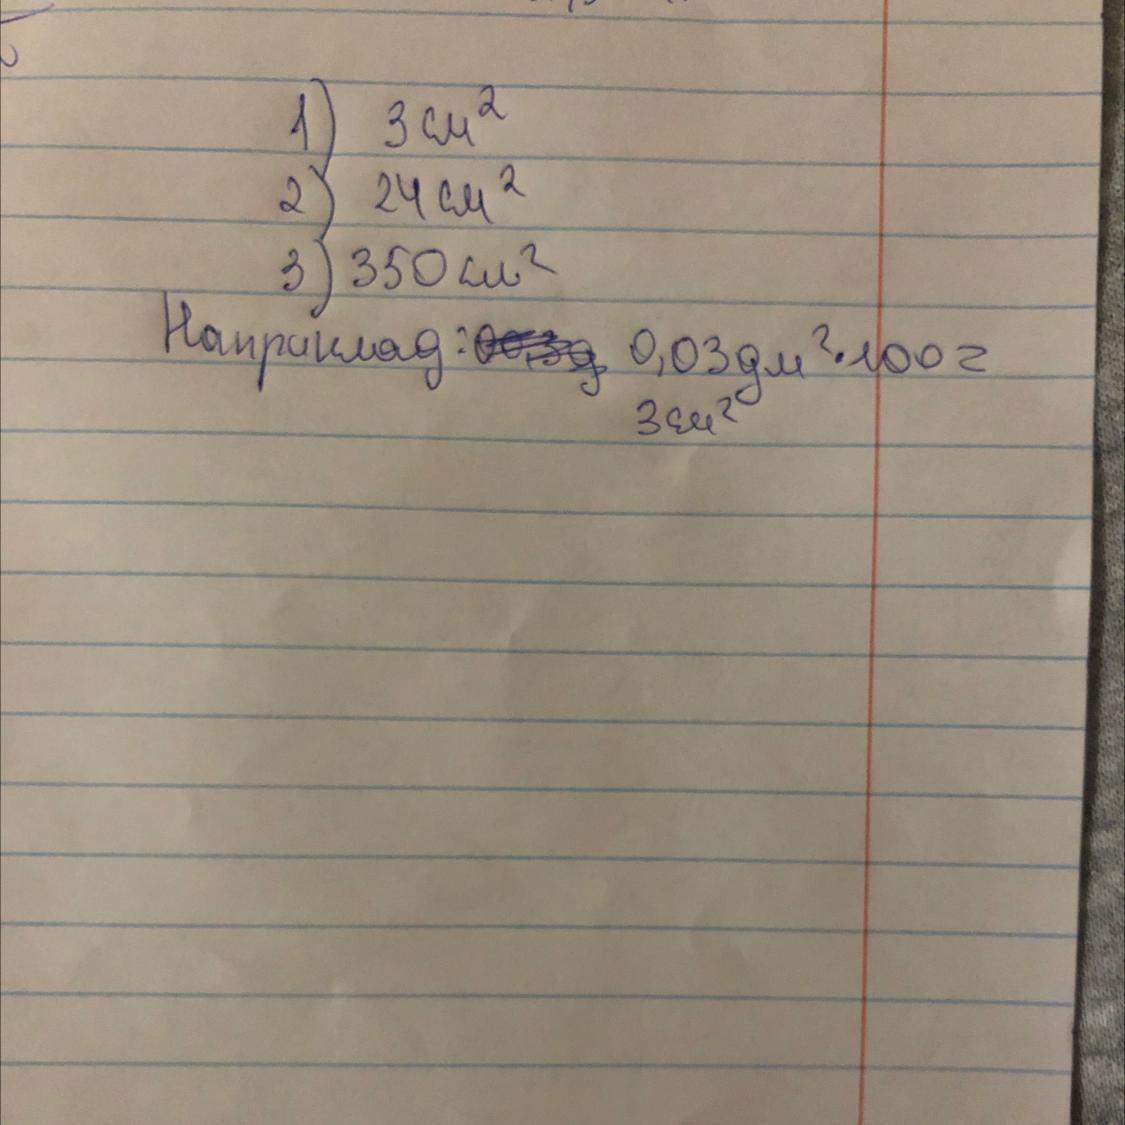 1) 3 см²
2) 24 см²
3) 350 см²
Наприклад: 0,03 дм² · 100 =
3 см²